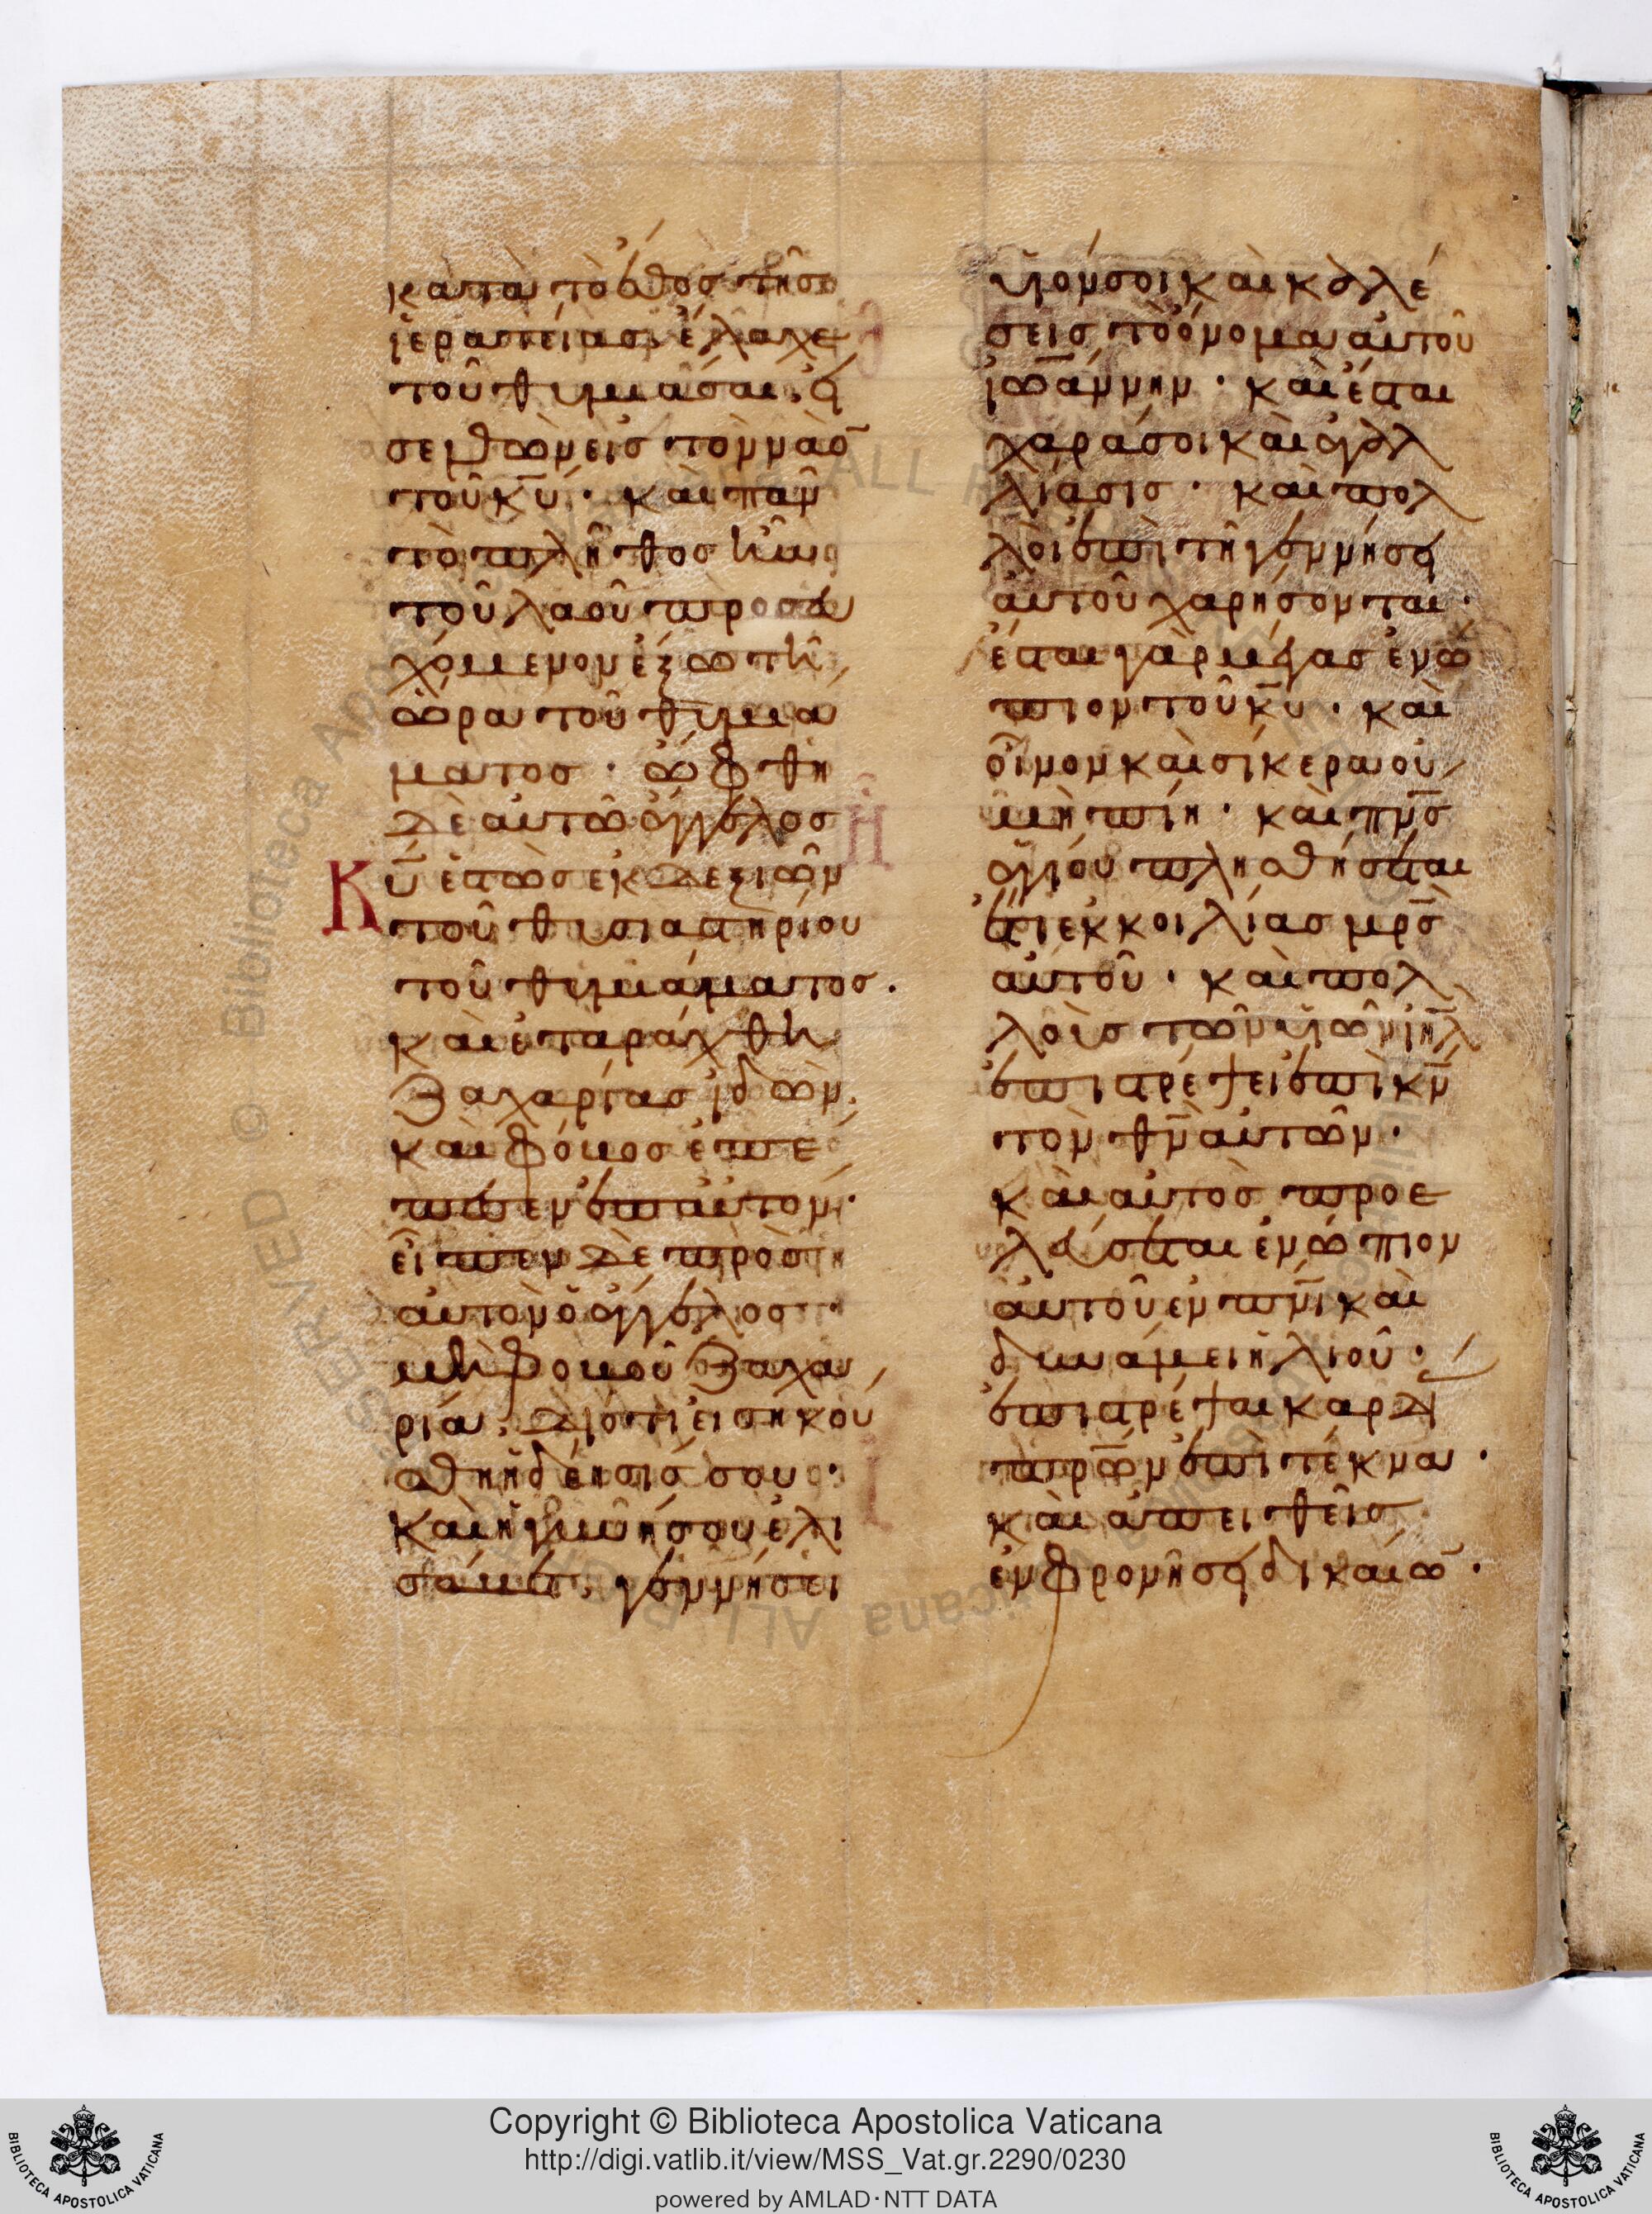 κατὰ τὸ ἔθος τῆς
ἱερατείας· ἔλαχε
τοῦ θυμιᾶσαι· εἰ
σελθὼν εἰς τὸν ναὸ̄
τοῦ κ̅υ̅· καὶ πᾶν
τὸ πλῆθος ἦν
τοῦ λαοῦ προσευ
χόμενον ἔξω τῆ
ὥρα τοῦ θυμιά
ματος· ὤφθη
δὲ αὐτῶ ἄγγελος
κ̅υ̅ ἑστὼς ἐκ δεξιῶν
τοῦ θυσιαστηρίου
τοῦ θυμιάματος·
καὶ ἐταράχθη
Ζαχαρίας ἰδὼν·
καὶ φόβος ἐπέ
πεσεν ἐπ αὐτόν·
εἶπεν δὲ πρὸς
αὐτὸν ὁ ἄγγελος·
μὴ φοβοῦ Ζαχα
ρία· διότι εἰσηκού
σθη ἡ δέησίς σου·
καὶ ἡ γυνή σου ἐλι
σάβετ· γεννήσει
υἱόν σοι καὶ καλέ
σεις τὸ ὄνομα αὐτοῦ
ἰωάννην· καὶ ἔσται
χαρά σοι καὶ ἀγαλ
λίασις· καὶ πολ
λοὶ ἐπὶ τῆ γεννήσει
αὐτοῦ χαρήσονται·
ἔσται γὰρ μέγας ἐνώ
πιον τοῦ κ̅υ̅· καὶ
οἶνον καὶ σίκερα οὐ
μὴ πίη· καὶ π̅ν̅ς̅
ἁγίου πλησθήσεται
ἔτι ἐκ κοιλίας μ̅ρ̅ς̅
αὐτοῦ· καὶ πολ
λοὺς τῶν υἱῶν ι̅η̅λ̅
ἐπιστρέψει ἐπὶ κ̅ν̅
τὸν θ̅ν̅ αὐτῶν·
καὶ αὐτὸς προε
λεύσεται ἐνώπιον
αὐτοῦ ἐν π̅ν̅ι̅ καὶ
δυνάμει ἠλιοῦ·
ἐπιστρέψαι καρδί
π̅ρ̅ω̅ν̅ ἐπὶ τέκνα·
καὶ ἀπειθεῖς
ἐν φρονήσει δικαίω̅·
Copyright © Biblioteca Apostolica Vaticana
http://digi.vatlib.it/view/MSS_Vat.gr.2290/0230
powered by AMLAD·NTT DATA
BIBLIOTECA APOSTOLICA VATICANA
BIBLIOTECA APOSTOLICA VATICANA